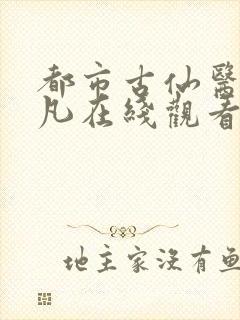 都市古仙醫
凡在綫觀看
地主家沒有魚